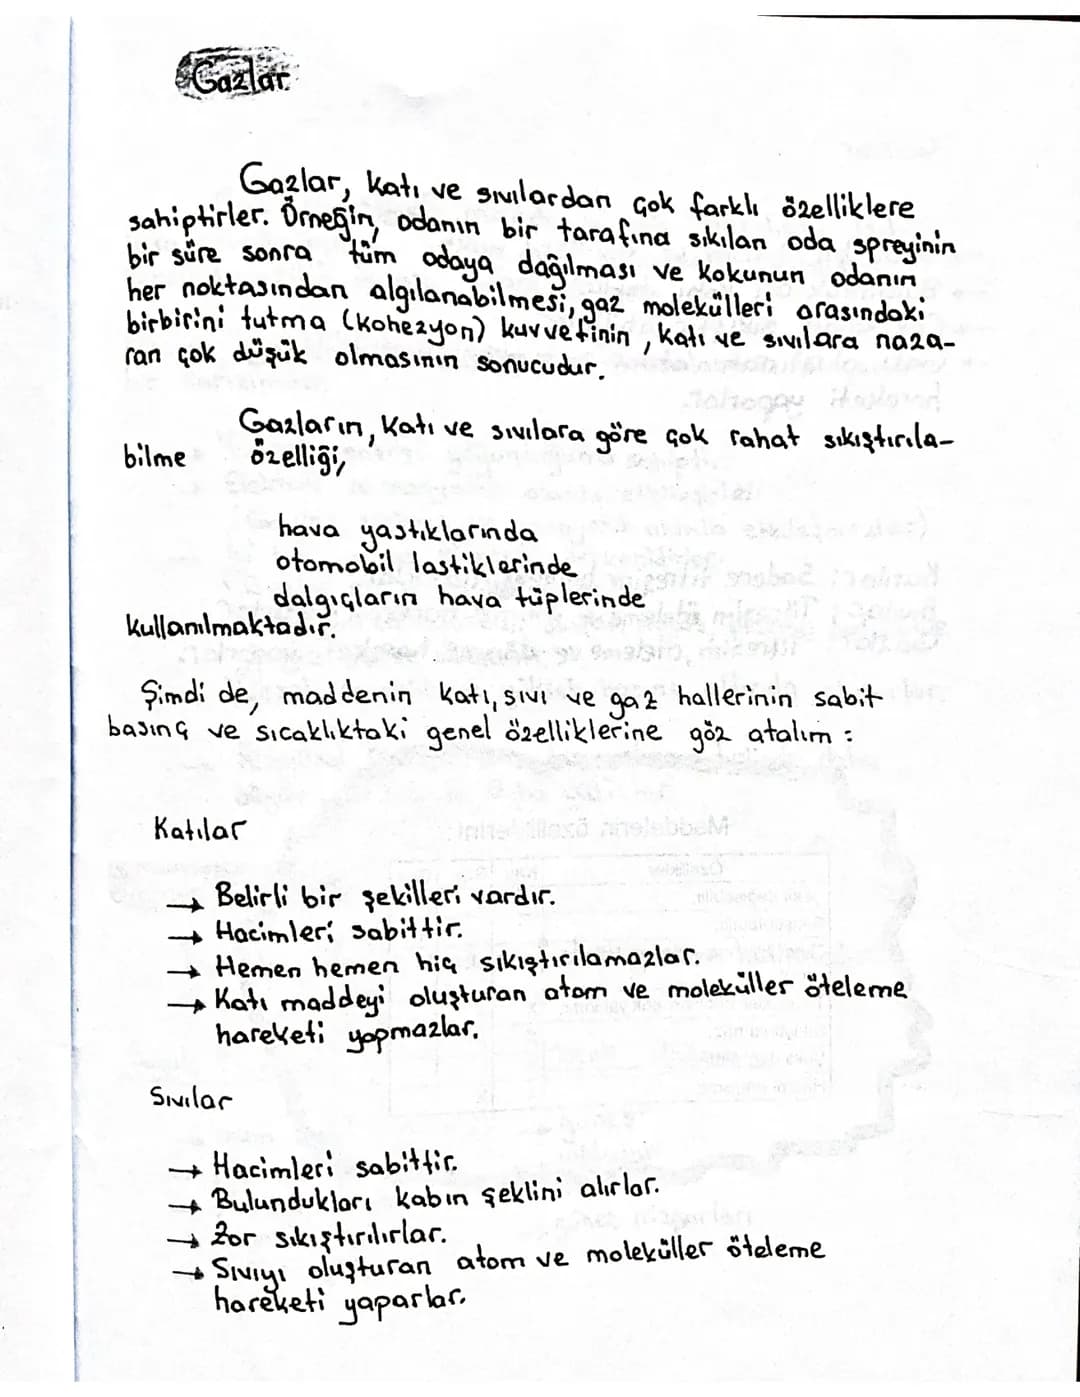 Gazlar
Gazlar, katı ve sıvılardan çok farklı özelliklere
sahiptirler. Örneğin, odanın bir tarafına sıkılan oda spreyinin
bir süre sonra tüm odaya dağılması ve kokunun odanın
her noktasından algılanabilmesi, gaz molekülleri arasındaki
birbirini tutma (kohezyon) kuvvetinin, katı ve sıvılara naza-
ran çok düşük olmasının sonucudur.
Gazların, katı ve sıvılara göre çok rahat sıkıştırıla-
bilme özelliği,
hava yastıklarında
otomobil lastiklerinde
dalgıçların hava tüplerinde
kullanılmaktadır.
Şimdi de, maddenin katı, sıvı ve gaz hallerinin sabit
basınç ve sıcaklıktaki genel özelliklerine göz atalım :
Katılar
→ Belirli bir şekilleri vardır.
→ Hacimleri sabittir.
→ Hemen hemen hiç sıkıştırılamazlar.
→ Katı maddeyi oluşturan atom ve moleküller öteleme
hareketi yapmazlar.
Sıvılar
→ Hacimleri sabittir.
→ Bulundukları kabın şeklini alırlar.
→ Zor sıkıştırılırlar.
→ Sıvıyı oluşturan atom ve moleküller öteleme
hareketi yaparlar.